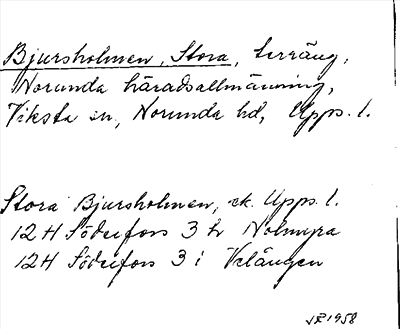 Bjursholmen, Stora, terräng,
Norunda häradsallmänning,
Viksta sn, Norunda hd, Upps. l.
Stora Bjursholmen, ek. Upps. l.
12 H Söderfors 3 h Nolmyra
12 H Söderfors 3 i Velängen
1958